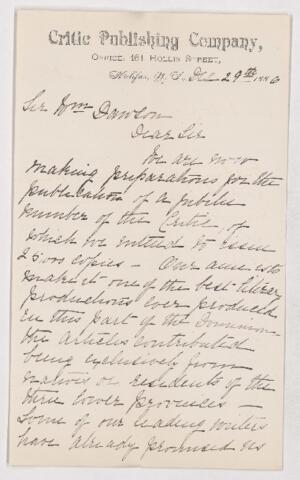 Critic Publishing Company,
OFFICE, 161 HOLLIS STREET,
Halifax, N. S. Dec 29th 1886
Sir Wm Dawson
Dear Sir
We are now
making preparations for the
publication of a Jubilee
number of the Critic, of
which we intend to issue
25000 copies - Our aim is to
make it one of the best literary
productions ever produced
in this part of the Dominion
the articles contributed
being exclusively from
natives or residents of the
three lower provinces -
Some of our leading writers
have already promised us